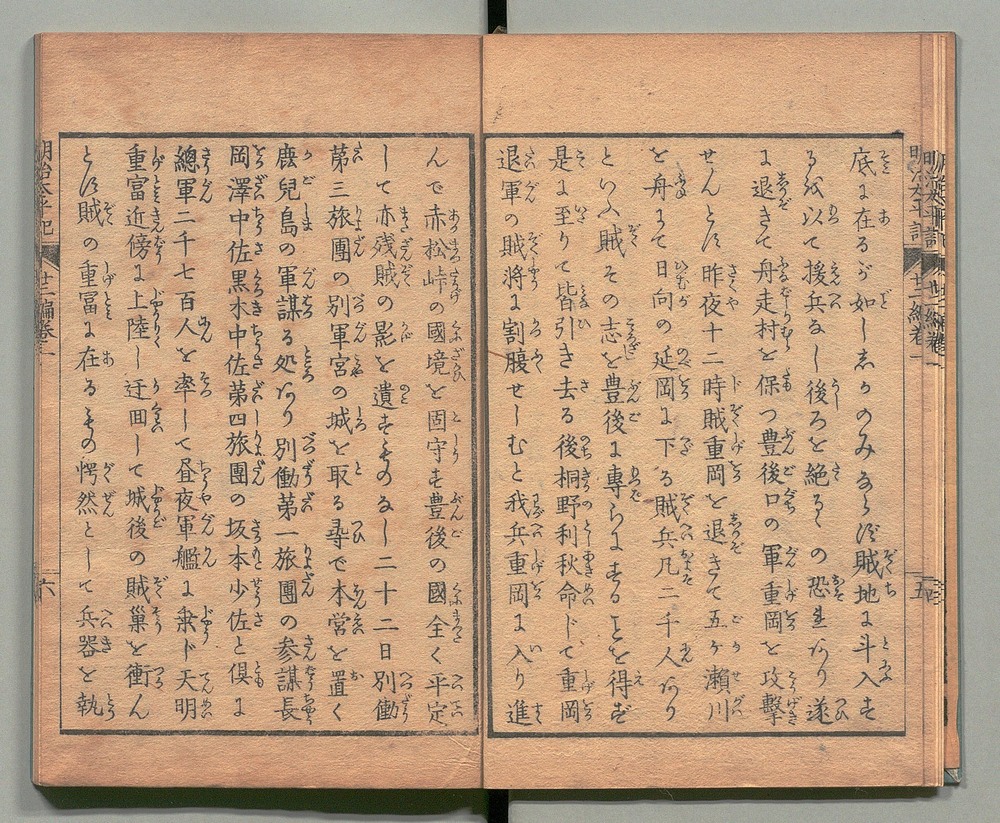 底に在るが如しあるのみならず賊地に斗入す
るを以て援兵なし後ろを絶るゝの恐れあり遂
に退きて舟走村を保つ豊後口の軍重岡を攻撃
せんとす昨夜十二時賊重岡を退きて五ヶ瀬川
を舟にて日向の延岡に下る賊兵凡二千人あり
といふ賊その志を豊後に專らにすることを得ず
是に至りて皆引き去る後桐野利秋命じて重岡
退軍の賊將に割腹せしむと我兵重岡に入り進
んで赤松峠の國境を固守す豊後の國全く平定
して亦残賊の影を遺すものなし二十二日別働
第三旅團の別軍宮の城を取る尋で本営を置く
鹿兒島の軍謀る処あり別働第一旅團の参謀長
岡澤中佐黒木中佐第四旅團の坂本少佐と倶に
總軍二千七百人を率して昼夜軍艦に乗じ天明
重富近傍に上陸し迂回して城後の賊巣を衝ん
とす賊の重冨に在るもの愕然として兵器を執
明治太平記
廿二編巻一
五
六